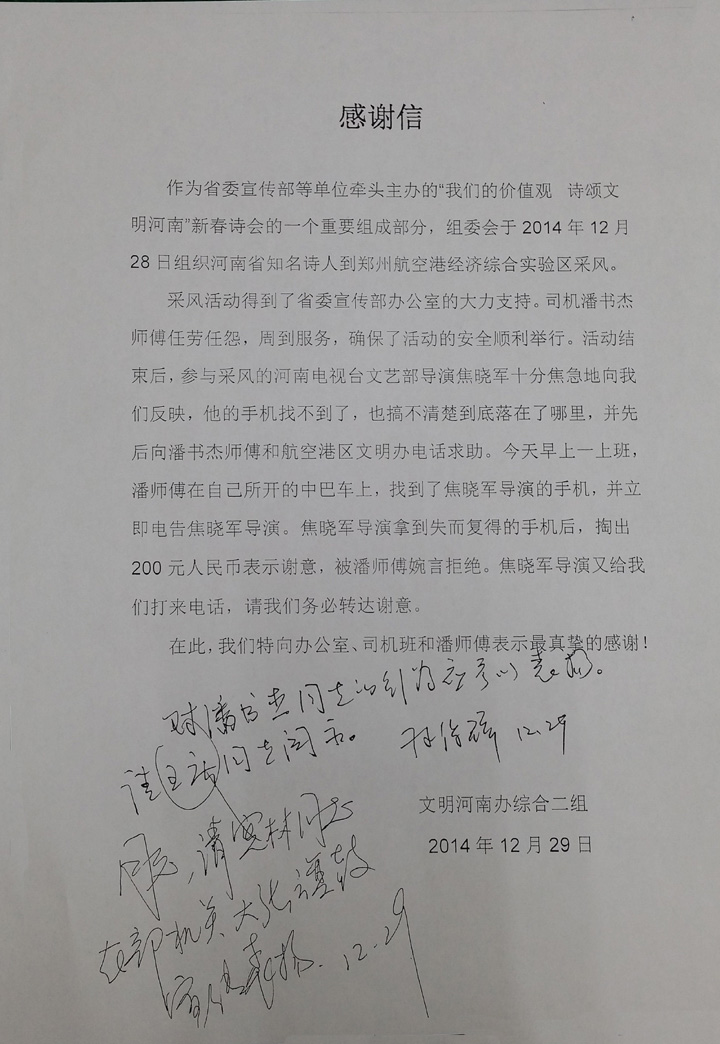 感谢信
作为省委宣传部等单位牵头主办的“我们的价值观 诗颂文
明河南”新春诗会的一个重要组成部分，组委会于 2014 年 12 月
28 日组织河南省知名诗人到郑州航空港经济综合实验区采风。
采风活动得到了省委宣传部办公室的大力支持。司机潘书杰
师傅任劳任怨，周到服务，确保了活动的安全顺利举行。活动结
束后，参与采风的河南电视台文艺部导演焦晓军十分焦急地向我
们反映，他的手机找不到了，也搞不清楚到底落在了哪里，并先
后向潘书杰师傅和航空港区文明办电话求助。今天早上一上班，
潘师傅在自己所开的中巴车上，找到了焦晓军导演的手机，并立
即电告焦晓军导演。焦晓军导演拿到失而复得的手机后，掏出
200 元人民币表示谢意，被潘师傅婉言拒绝。焦晓军导演又给我
们打来电话，请我们务必转达谢意。
在此，我们特向办公室、司机班和潘师傅表示最真挚的感谢！
对潘书杰同志的行为应予以表扬。
请 同志阅示。 12.29
文明河南办综合二组
2014 年 12 月 29 日
请 林同志
在部机关大张旗鼓
表扬. 12.29